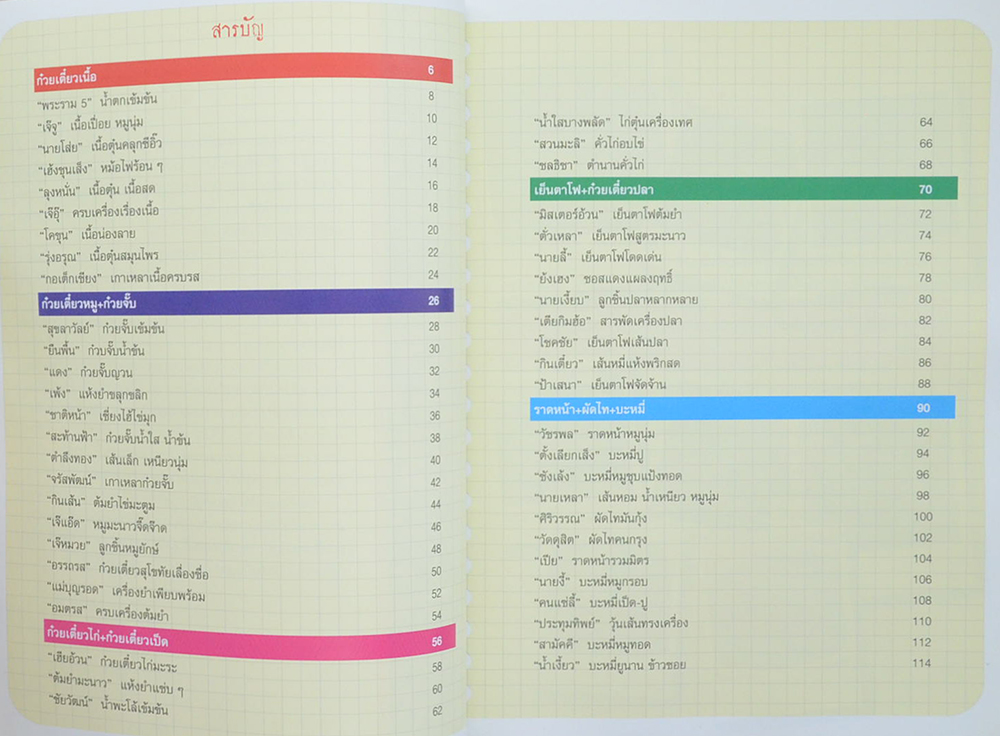 สารบัญ
ก๋วยเตี๋ยวเนื้อ 6
“พระราม 5” น้ำตกเข้มข้น 8
“เจ๊จู” เนื้อเปื่อย หมูนุ่ม 10
“นายโส่ย” เนื้อตุ๋นคลุกซีอิ๊ว 12
“เฮ้งชุนเส็ง” หม้อไฟร้อน ๆ 14
“ลุงหนั่น” เนื้อตุ๋น เนื้อสด 16
“เจ๊อุ๊” ครบเครื่องเรื่องเนื้อ 18
“โคขุน” เนื้อน่องลาย 20
“รุ่งอรุณ” เนื้อตุ๋นสมุนไพร 22
“กอเต็กเชียง” เกาเหลาเนื้อครบรส 24
ก๋วยเตี๋ยวหมู+ก๋วยจั๊บ 26
“สุขลาวัลย์” ก๋วยจั๊บเข้มข้น 28
“ยืนพื้น” ก๋วบจั๊บน้ำข้น 30
“แดง” ก๋วยจั๊บญวน 32
“เพ้ง” แห้งยำขลุกขลิก 34
“ชาติหน้า” เซี่ยงไฮ้ไข่มุก 36
“สะท้านฟ้า” ก๋วยจั๊บน้ำใส น้ำข้น 38
“ตำลึงทอง” เส้นเล็ก เหนียวนุ่ม 40
“จรัสพัฒน์” เกาเหลาก๋วยจั๊บ 42
“กินเส้น” ต้มยำไข่มะตูม 44
“เจ๊แอ๊ด” หมูมะนาวจี๊ดจ๊าด 46
“เจ๊หมวย” ลูกชิ้นหมูยักษ์ 48
“อรรถรส” ก๋วยเตี๋ยวสุโขทัยเลื่องชื่อ 50
“แม่บุญรอด” เครื่องยำเพียบพร้อม 52
“อมตรส” ครบเครื่องต้มยำ 54
ก๋วยเตี๋ยวไก่+ก๋วยเตี๋ยวเป็ด 56
“เฮียอ้วน” ก๋วยเตี๋ยวไก่มะระ 58
“ต้มยำมะนาว” แห้งยำแซ่บ ๆ 60
“ชัยวัฒน์” น้ำพะโล้เข้มข้น 62
“น้ำใสบางพลัด” ไก่ตุ๋นเครื่องเทศ 64
“สวนมะลิ” คั่วไก่อบไข่ 66
“ชลธิชา” ตำนานคั่วไก่ 68
เย็นตาโฟ+ก๋วยเตี๋ยวปลา 70
“มิสเตอร์อ้วน” เย็นตาโฟต้มยำ 72
“ตั่วเหลา” เย็นตาโฟสูตรมะนาว 74
“นายลี้” เย็นตาโฟโดดเด่น 76
“ย้งเฮง” ซอสแดงแผลงฤทธิ์ 78
“นายเงี๊ยบ” ลูกชิ้นปลาหลากหลาย 80
“เตียกิมฮ้อ” สารพัดเครื่องปลา 82
“โชคชัย” เย็นตาโฟเส้นปลา 84
“กินเตี๋ยว” เส้นหมี่แห้งพริกสด 86
“ป้าเสนา” เย็นตาโฟจัดจ้าน 88
ราดหน้า+ผัดไท+บะหมี่ 90
“วัชรพล” ราดหน้าหมูนุ่ม 92
“ตั้งเลียกเส็ง” บะหมี่ปู 94
“ซังเล้ง” บะหมี่หมูชุบแป้งทอด 96
“นายเหลา” เส้นหอม น้ำเหนียว หมูนุ่ม 98
“ศิริวรรณ” ผัดไทมันกุ้ง 100
“วัดดุสิต” ผัดไทคนกรุง 102
“เปีย” ราดหน้ารวมมิตร 104
“นายงี้” บะหมี่หมูกรอบ 106
“คนแซ่ลี้” บะหมี่เป็ด-ปู 108
“ประทุมทิพย์” วุ้นเส้นทรงเครื่อง 110
“สามัคคี” บะหมี่หมูทอด 112
“น้ำเงี้ยว” บะหมี่ยูนาน ข้าวซอย 114